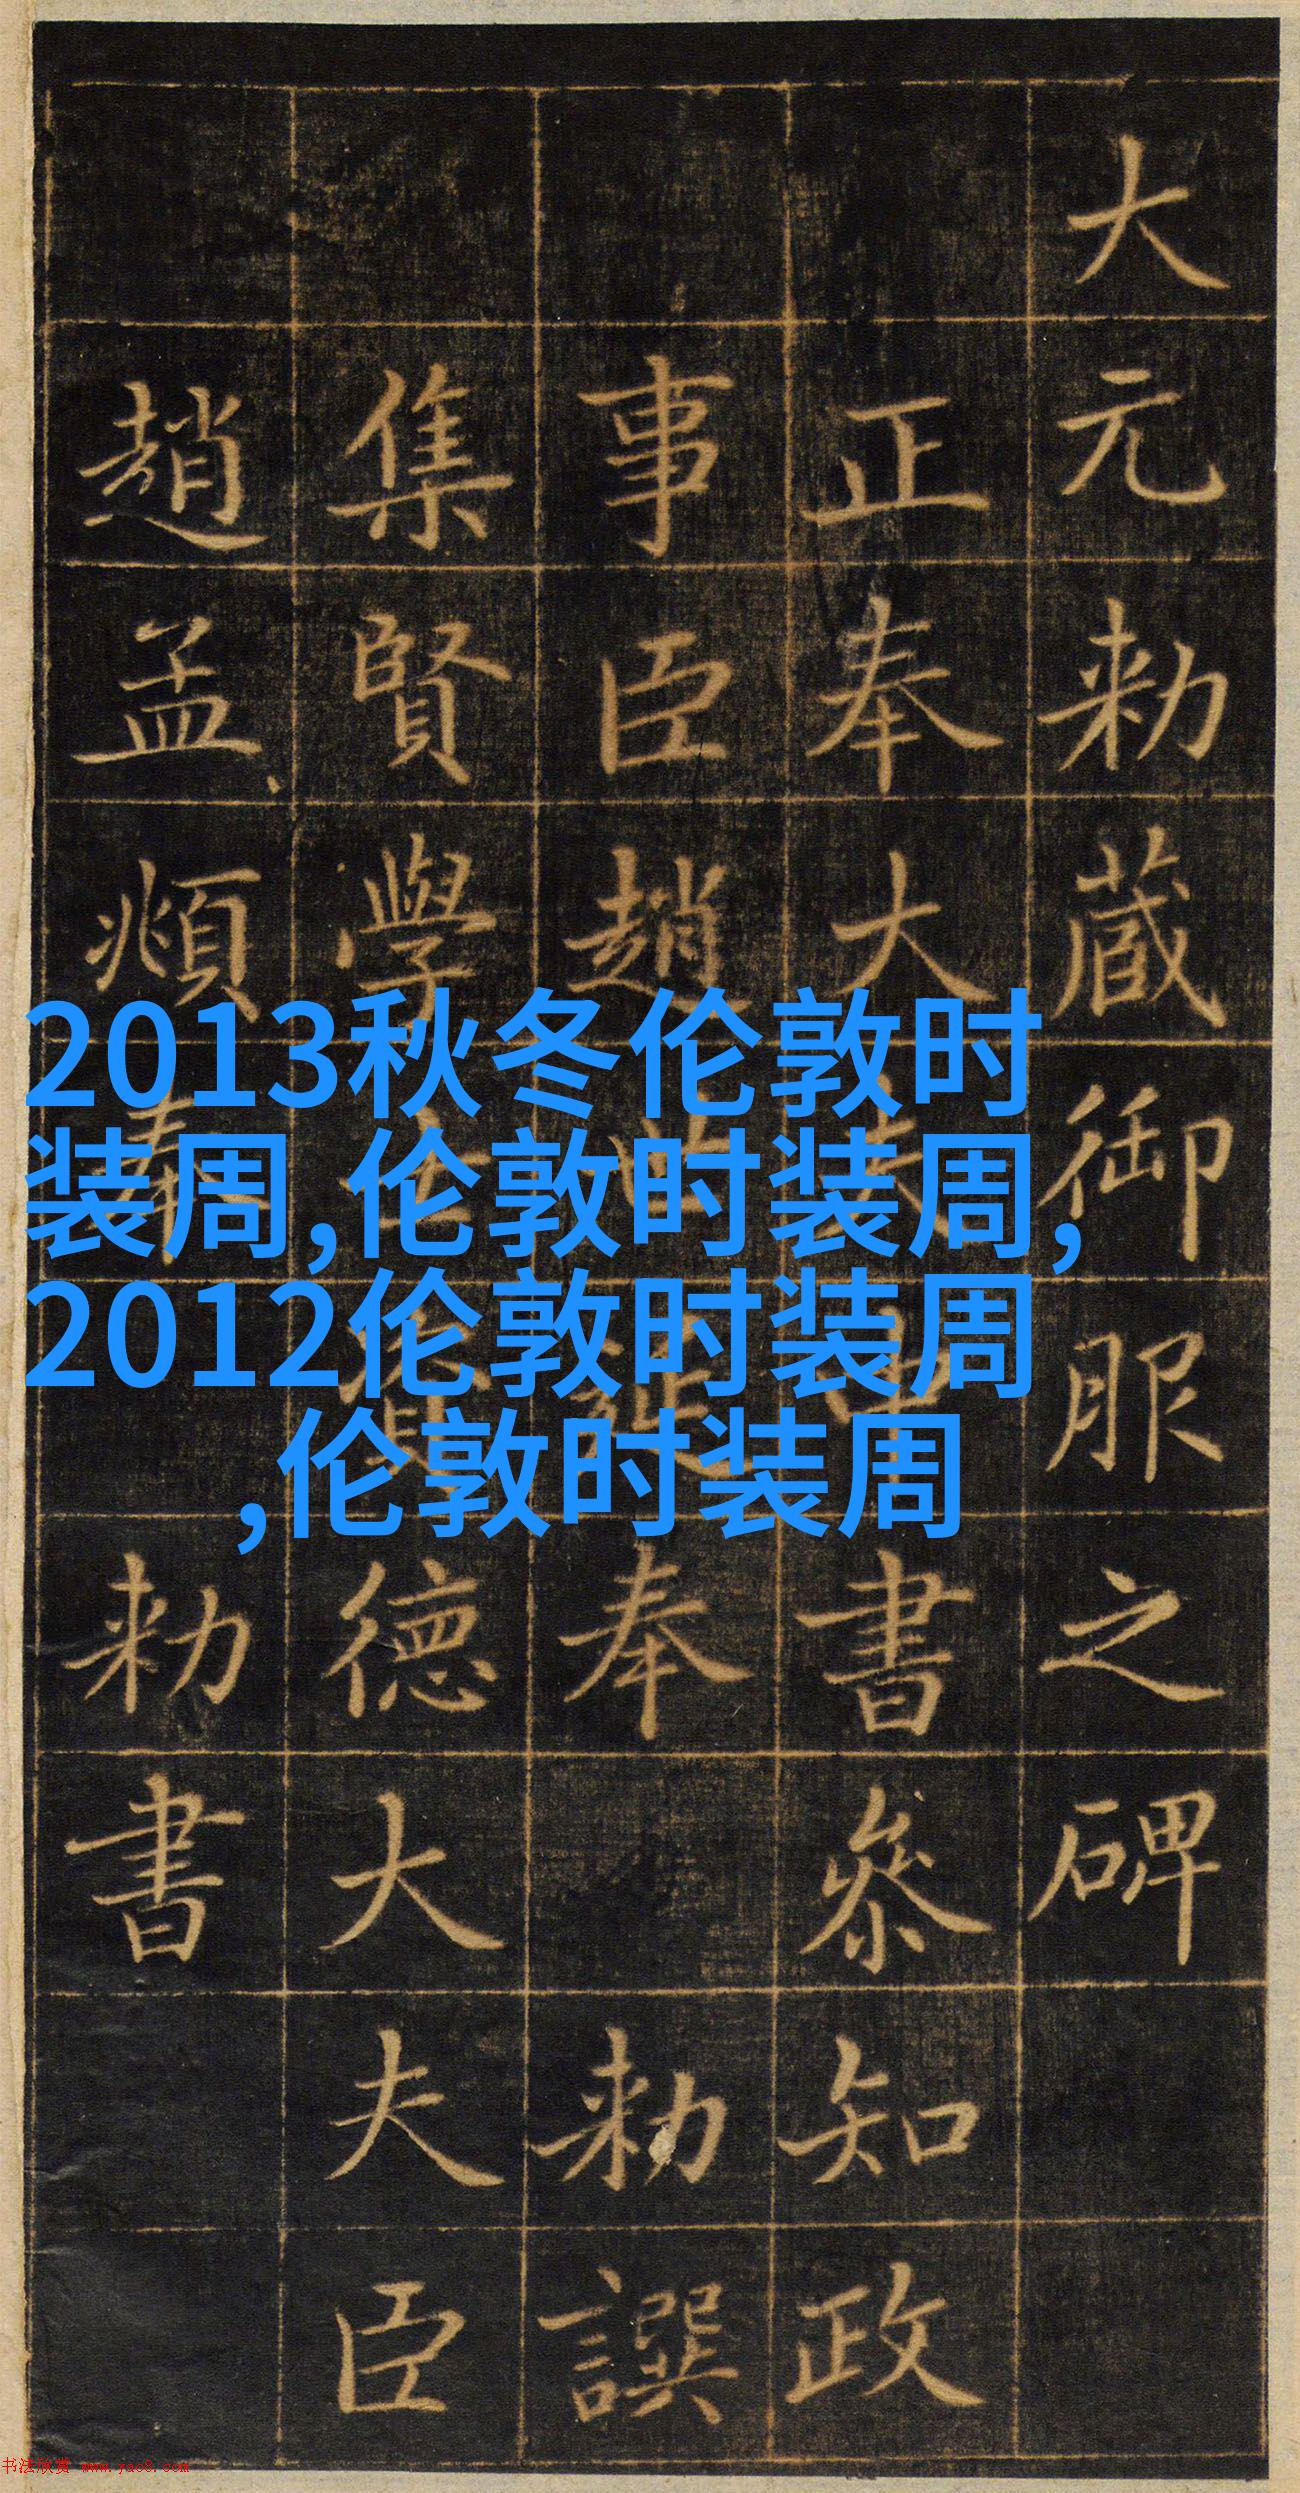 大元勅蔵御服之碑
正奉大夫中書叅知政
事臣趙世延奉勅譔
集賢學士資德大夫臣
趙孟頫奉勅書
2013秋冬伦敦时
装周,伦敦时装周,
2012伦敦时装周
,伦敦时装周
书法欣赏 www.yac8.com